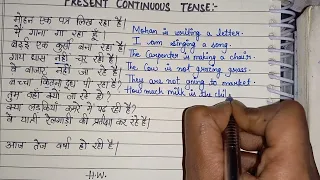 PRESENT CONTINUOUS TENSE:-
मोहन एक पत्र लिख रहा है। Mohan is writing a letter.
मैं गाना गा रहा हूँ। I am singing a song.
बढ़ई एक कुर्सी बना रहा है। The Carpenter is making a chair.
गाय घास नहीं चर रही है। The Cow is not grazing grass.
वे बाजार नहीं जा रहे हैं। They are not going to market.
बच्चा कितना दूध पी रहा है? How much milk is the chil
तुम वहाँ क्यों जा रहे हो?
क्या लड़कियाँ कमरे में पढ़ रही हैं?
वे यात्री रेलगाड़ी की प्रतीक्षा कर रहे हैं।
आज तेज वर्षा हो रही है।
H.W.